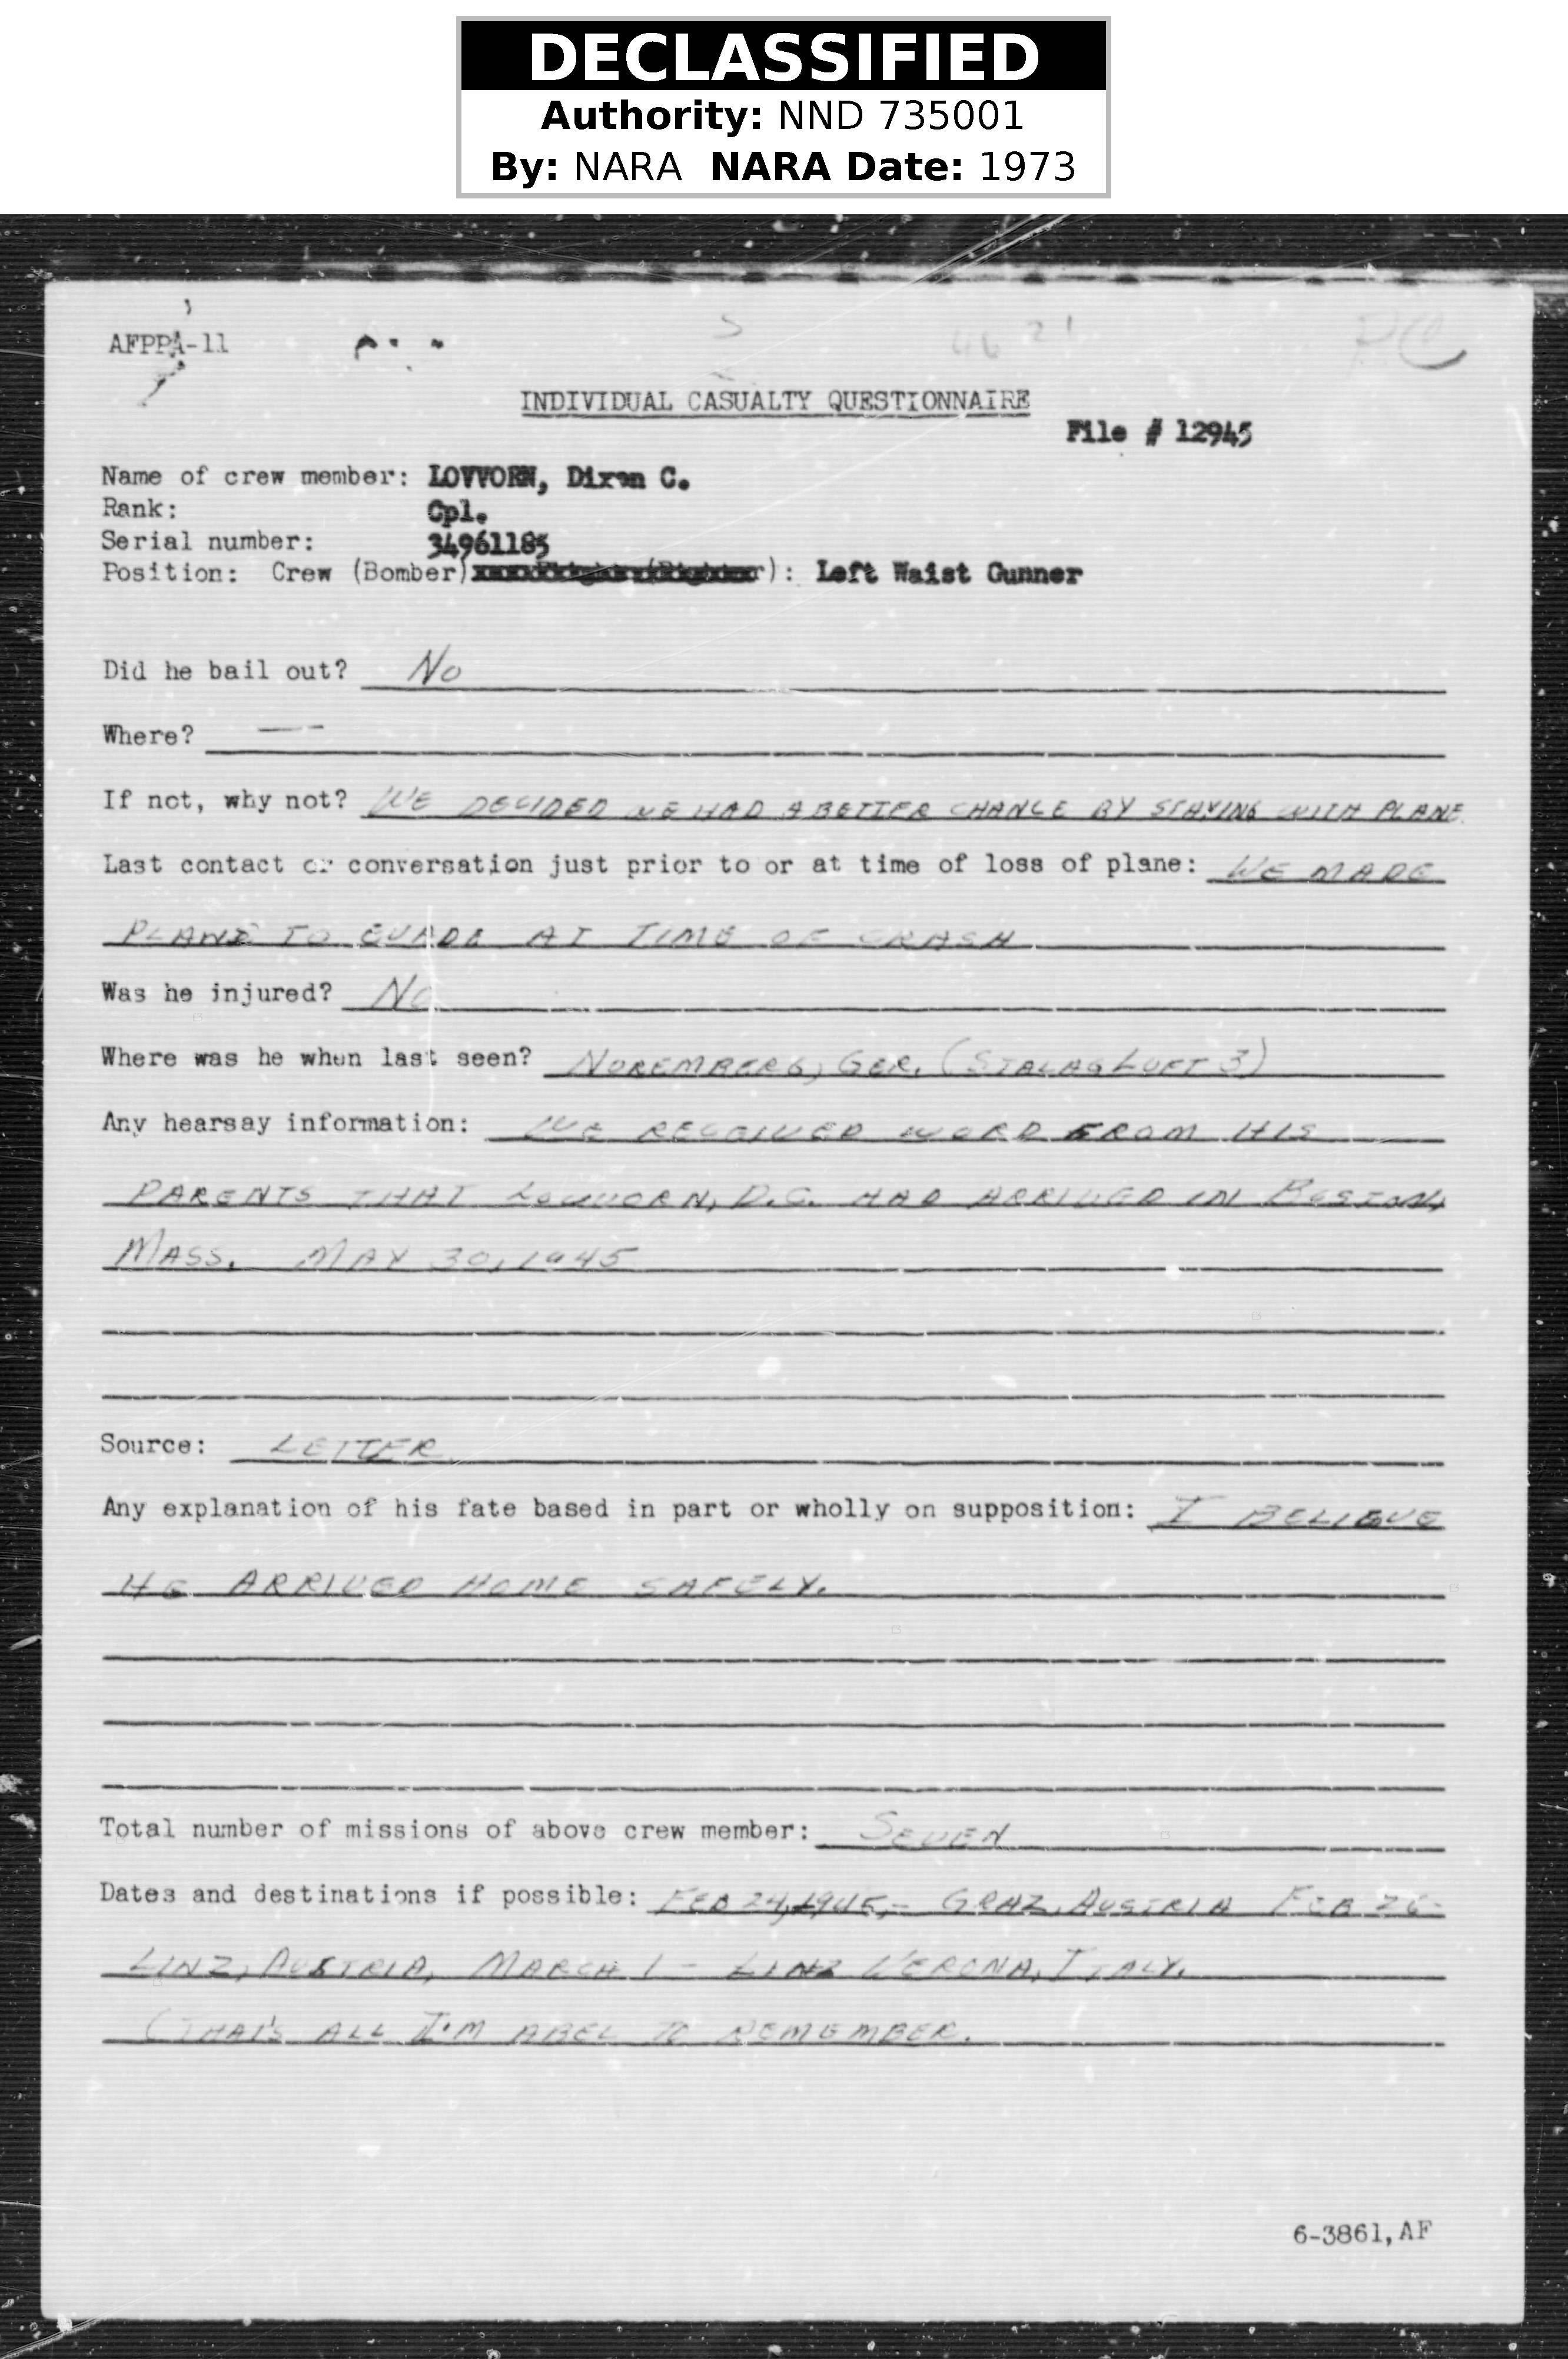 DECLASSIFIED
Authority: NND 735001
By: NARA NARA Date: 1973
AFPPA-11
INDIVIDUAL CASUALTY QUESTIONNAIRE
File # 12945
Name of crew member: LOVVORN, Dixon C.
Rank: Cpl.
Serial number: 34961185
Position: Crew (Bomber) : Left Waist Gunner
Did he bail out? No
Where? —
If not, why not? WE DECIDED WE HAD A BETTER CHANCE BY STAYING WITH PLANE
Last contact or conversation just prior to or at time of loss of plane: WE MADE
PLANS TO EVADE AT TIME OF CRASH
Was he injured? No
Where was he when last seen? NOREMBERG, GER. (STALAG LUFT 3)
Any hearsay information: WE RECEIVED WORD FROM HIS
PARENTS THAT LOVVORN, D.C. HAD ARRIVED IN BOSTON,
MASS. MAY 30, 1945
Source: LETTER
Any explanation of his fate based in part or wholly on supposition: I BELIEVE
HE ARRIVED HOME SAFELY.
Total number of missions of above crew member: SEVEN
Dates and destinations if possible: FEB 24, 1945,- GRAZ, AUSTRIA FEB 26-
LINZ, AUSTRIA, MARCH 1 - LINZ VERONA, ITALY.
(THAT'S ALL I'M ABEL TO REMEMBER.
6-3861, AF